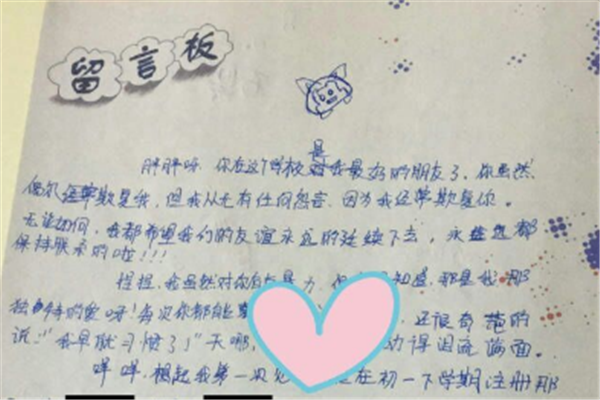 留言板
胖胖呀,你在这个学校是我最好的朋友了,你虽然
偶尔欺负我,但我从无有任何怨言,因为我经常欺负你。
无论如何,我都希望我们的友谊永远的延续下去,永远都
保持联系的啦!!!
捏捏,我虽然对你有暴力,但 知 ,那是我那
独特的爱呀!每次你都能 ,还很 的
说:"我早就习惯了!"天哪, 得泪流满面。
咩咩,想起我第一次 在初一下学期注册那